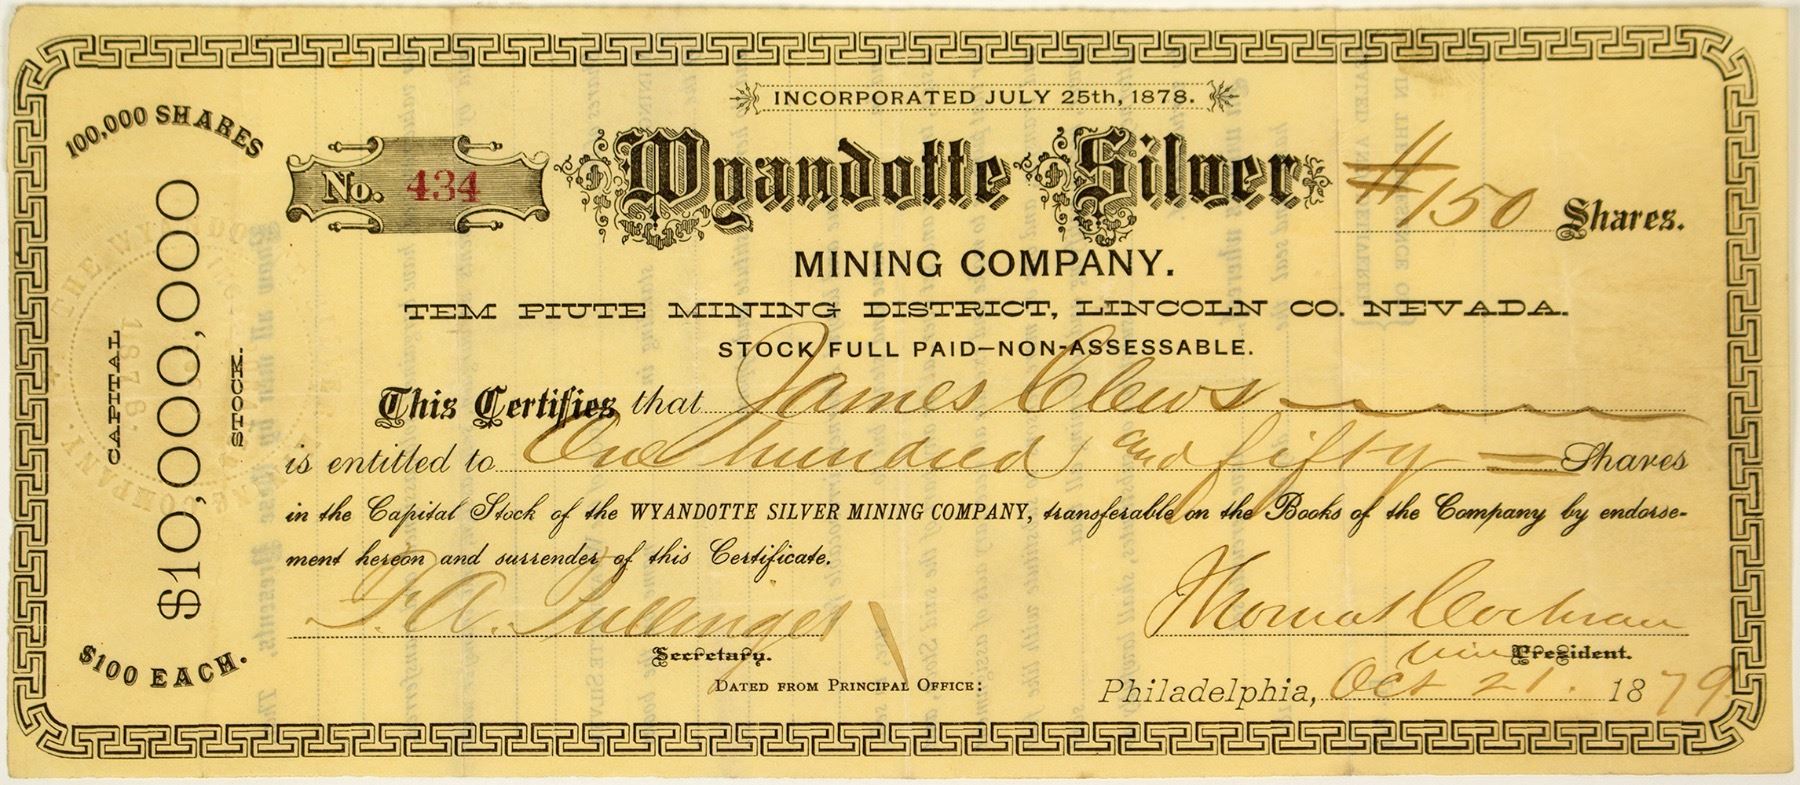 INCORPORATED JULY 25th, 1878.
100,000 SHARES
No. 434
Wyandotte Silver
# 150 Shares.
MINING COMPANY.
TEM PIUTE MINING DISTRICT, LINCOLN CO. NEVADA.
STOCK FULL PAID—NON-ASSESSABLE.
CAPITAL
$10,000,000
STOCK.
$100 EACH.
This Certifies that James Clews
is entitled to One hundred and fifty Shares
in the Capital Stock of the WYANDOTTE SILVER MINING COMPANY, transferable on the Books of the Company by endorse-
ment hereon and surrender of this Certificate.
Thomas Cochran
Secretary.
President.
DATED FROM PRINCIPAL OFFICE:
Philadelphia, Oct 21. 1879